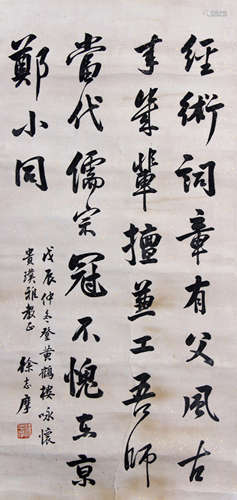 經術詞章有父風古
来幾輩擅兼工吾師
當代儒宗冠不愧东京
鄭小同
戊辰仲冬登黄鶴樓咏懷
貴璞雅教正
徐志摩